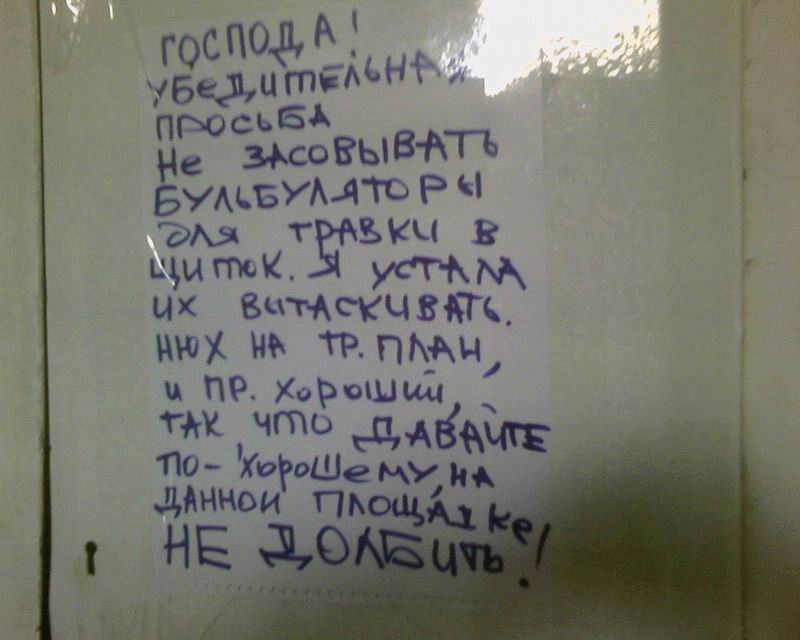 ГОСПОДА!
УБЕДИТЕЛЬНАЯ
ПРОСЬБА
НЕ ЗАСОВЫВАТЬ
БУЛЬБУЛЯТОРЫ
ДЛЯ ТРАВКИ В
ЩИТОК. Я УСТАЛА
ИХ ВЫТАСКИВАТЬ.
НЮХ НА ТР. ПЛАН,
И ПР. ХОРОШИЙ,
ТАК ЧТО ДАВАЙТЕ
ПО-ХОРОШЕМУ, НА
ДАННОЙ ПЛОЩАДКЕ
НЕ ДОЛБИТЬ!